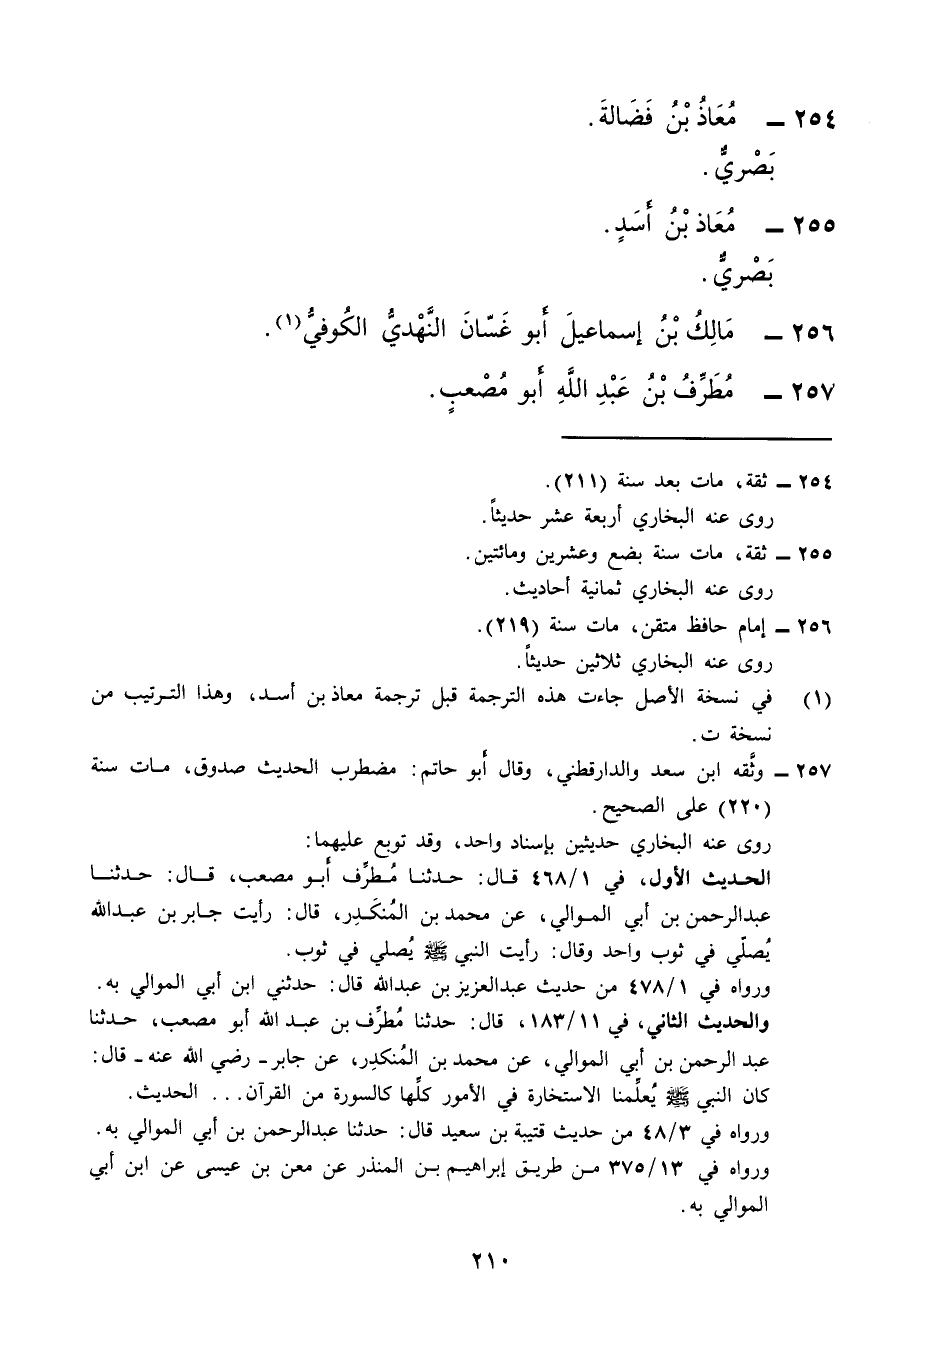 ٢٥٤ ـ مُعَاذُ بْنُ فَضَالةَ.
بَصْريٌّ.
٢٥٥ ـ مُعَاذ بْنُ أَسَدٍ.
بَصْريٌّ.
٢٥٦ ـ مَالِكُ بْنُ إسماعيلَ أَبو غَسّانَ النَّهْديُّ الكُوفيُّ(١).
٢٥٧ ـ مُطَرِّفُ بْنُ عَبْدِ اللَّهِ أَبو مُصْعبٍ.
٢٥٤ ـ ثقة، مات بعد سنة (٢١١).
روى عنه البخاري أربعة عشر حديثاً.
٢٥٥ ـ ثقة، مات سنة بضع وعشرين ومائتين.
روى عنه البخاري ثمانية أحاديث.
٢٥٦ ـ إمام حافظ متقن، مات سنة (٢١٩).
روى عنه البخاري ثلاثين حديثاً.
(١) في نسخة الأصل جاءت هذه الترجمة قبل ترجمة معاذ بن أسد، وهذا الترتيب من
نسخة ت.
٢٥٧ ـ وثَّقه ابن سعد والدارقطني، وقال أَبو حاتم: مضطرب الحديث صدوق، مات سنة
(٢٢٠) على الصحيح.
روى عنه البخاري حديثين بإسناد واحد، وقد توبع عليهما:
الحديث الأول، في ٤٦٨/١ قال: حدثنا مُطرِّف أَبو مصعب، قال: حدثنا
عبدالرحمن بن أبي الموالي، عن محمد بن المُنكَدِر، قال: رأيت جابر بن عبدالله
يُصلّي في ثوب واحد وقال: رأيت النبي ﷺ يُصلي في ثوب.
ورواه في ٤٧٨/١ من حديث عبدالعزيز بن عبدالله قال: حدثني ابن أبي الموالي به.
والحديث الثاني، في ١٨٣/١١، قال: حدثنا مُطرِّف بن عبد الله أبو مصعب، حدثنا
عبد الرحمن بن أبي الموالي، عن محمد بن المُنكدِر، عن جابر ـ رضي الله عنه ـ قال:
كان النبي ﷺ يُعلِّمنا الاستخارة في الأمور كلِّها كالسورة من القرآن... الحديث.
ورواه في ٤٨/٣ من حديث قتيبة بن سعيد قال: حدثنا عبدالرحمن بن أبي الموالي به.
ورواه في ٣٧٥/١٣ من طريق إبراهيم بن المنذر عن معن بن عيسى عن ابن أبي
الموالي به.
٢١٠